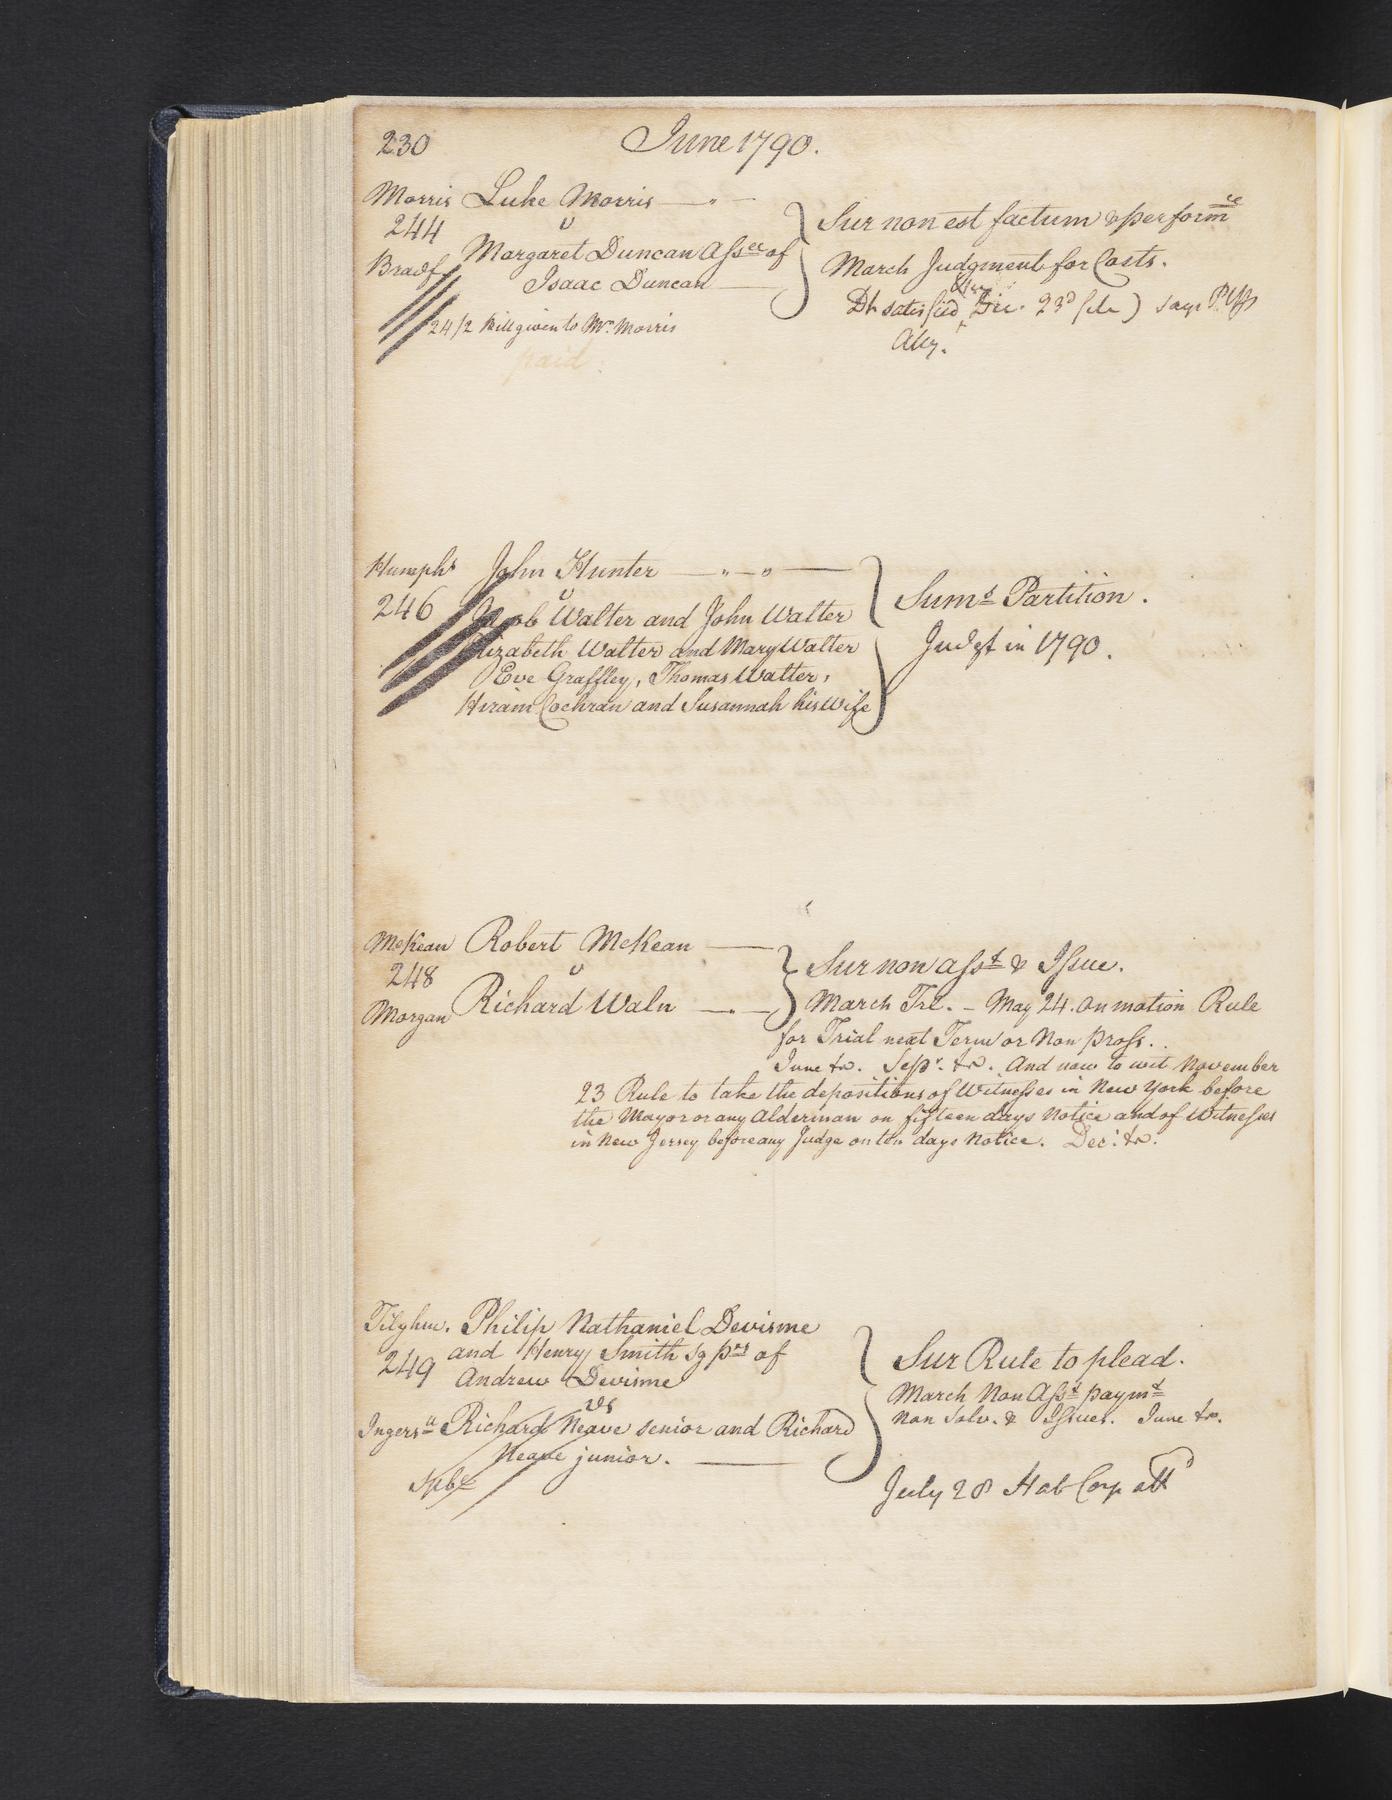 230 June 1790.
Morris Luke Morris
244 v
Bradf. Margaret Duncan Assee of
Isaac Duncan
24/2 Bill given to Mr. Morris
paid
Sur non est factum & performce
March Judgment for Costs.
Dt satisfied Dec. 23d says Pltffs
Atty.
Humphs John Hunter
246 v
Jacob Walter and John Walter
Elizabeth Walter and Mary Walter
Eve Graffley, Thomas Walter,
Hiram Cochran and Susannah his Wife
Sums Partition.
Judgt in 1790.
McKean Robert McKean
248 v
Morgan Richard Waln
Sur non Asst & Issue.
March Trl. - May 24. on motion Rule
for Trial next Term or Non pross.
June tr. Sepr. tr. And now to wit November
23 Rule to take the depositions of Witnesses in New York before
the Mayor or any Alderman on fifteen days Notice and of Witnesses
in New Jersey before any Judge on ten days Notice. Decr. tr.
Tilghm. Philip Nathaniel Devisme
249 and Henry Smith sg prs of
Andrew Devisme
vs
Ingersll Richard Neave senior and Richard
Neave junior.
Sur Rule to plead.
March Non Asst paymt
Non Solv. & Issues. June tr.
July 28 Hab Corp